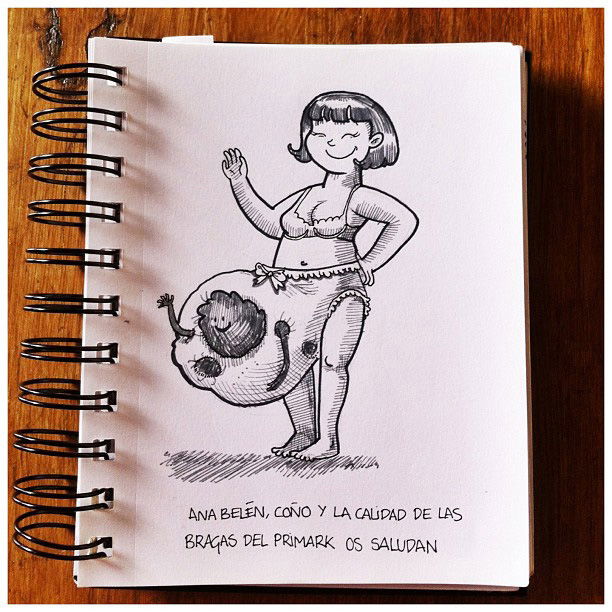 ANA BELÉN, COÑO Y LA CALIDAD DE LAS
BRAGAS DEL PRIMARK OS SALUDAN